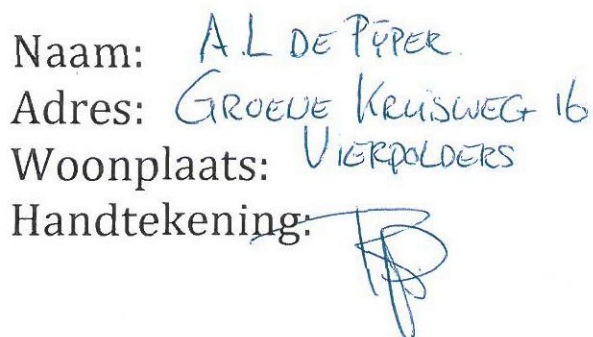 Naam: A.L DE PÿPER
Adres: GROENE KRUISWEG 16
Woonplaats: VIERPOLDERS
Handtekening: